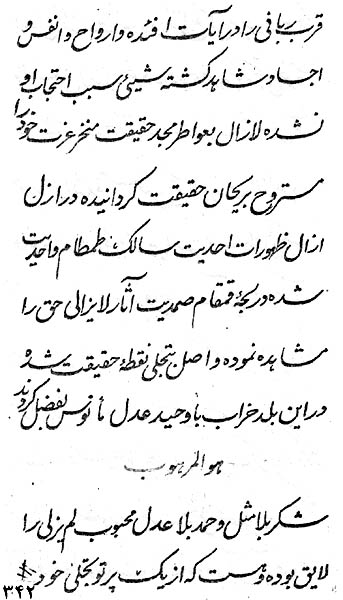 قرب ربانی را در آیات افئده و ارواح و انفس و
اجساد مشاهد گشته شیئی سبب احتجاب او
نشده لازال بعواطر مجد حقیقت متحر عزت خود را
مستروح بریحان حقیقت گردانیده در ازل
ازال ظهورات احدیت سالک طمطام واحدیت
شده در لجهٔ قمقام صمدیت آثار لایزالی حق را
مشاهده نموده واصل بتجلی نقطهٔ حقیقت شده
در این بلد خراب با وحید عدل مأنوس بفضل گردند
هو المرهوب
شکر بلا مثل و حمد بلا عدل محبوب لم یزلی را
لایق بوده و هست که از یک پرتو تجلی خود
۳۴۲